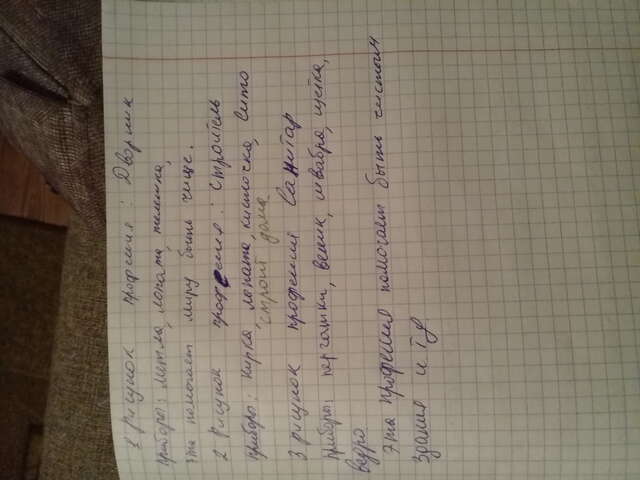 1 Рисунок профессия: Дворник
приборы: метла, лопата, тележка,
эта помогает миру быть чище.
2 Рисунок професия: строитель
приборы: кирка, лопата, кисточка, сито
строит дома
3 рисунок професия Санитар
приборы: перчатки, веник, швабра, щётка,
ведро
Эта професия помогает быть чистым
здания и тд